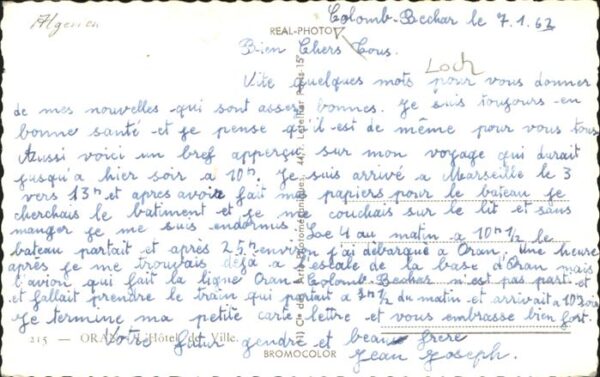 Algerien
Colomb-Bechar le 7.1.62
REAL-PHOTO
Bien Chers Tous.
Loch
Vite quelques mots pour vous donner
de mes nouvelles qui sont asser bonnes. Je suis toujours en
bonne santé et je pense qu'il est de même pour vous tous
Aussi voici un bref apperçu sur mon voyage qui durait
jusqu'a hier soir a 10h. Je suis arrivé a Marseille le 3
vers 13h et apres avoir fait mes papiers pour le bateau je
cherchais le batiment et je me couchais sur le lit et sans
manger je me suis endormis. Le 4 au matin a 10h 1/2 le
bateau partait et après 25h environ j'ai débarqué a Oran, une heure
après je me trouvais déjà a l'escale de la base d'Oran mais
l'avion qui fait la ligne Oran-Colomb-Bechar n'est pas parti et
et fallait prendre le train qui partait a 3h 1/2 du matin et arrivait a 10h soir
Je termine ma petite carte lettre et vous embrasse bien fort.
215 — ORAN - L'Hôtel de Ville.
Votre futur gendre et beau frère
BROMOCOLOR
Jean Joseph.